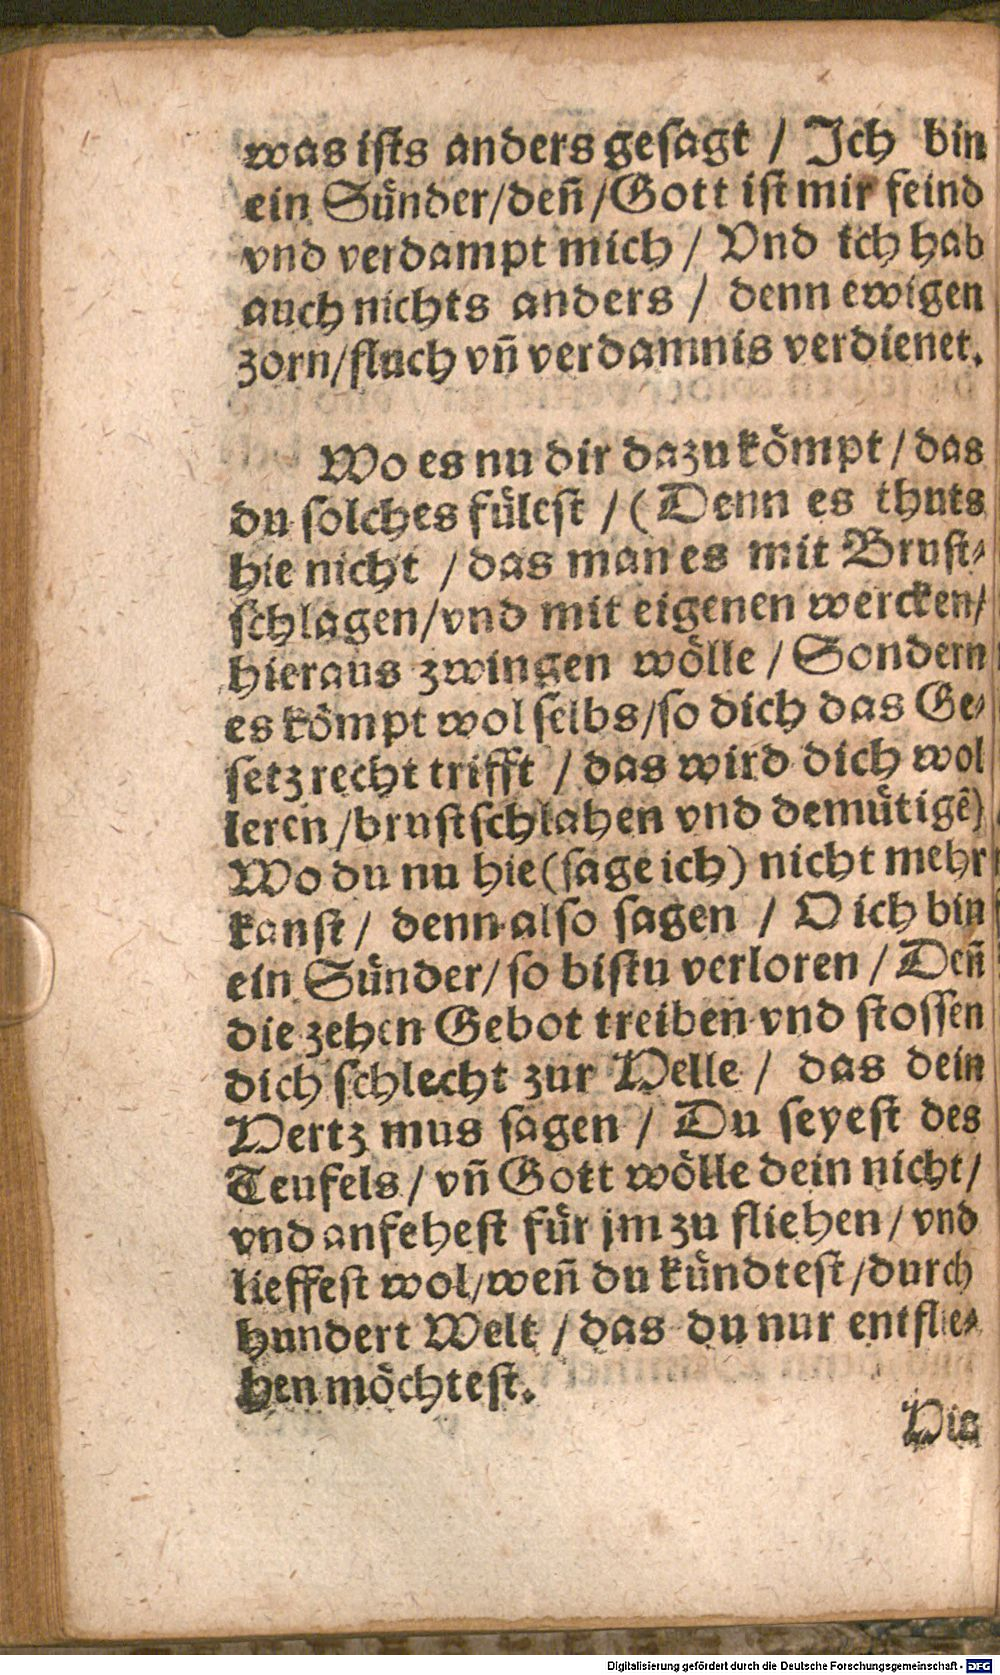 was ists anders gesagt / Ich bin
ein Sünder/deñ/Gott ist mir feind
vnd verdampt mich / Vnd ich hab
auch nichts anders / denn ewigen
zorn/fluch vñ verdamnis verdienet.
Wo es nu dir dazu kömpt / das
du solches fülest / (Denn es thuts
hie nicht / das man es mit Brust-
schlagen/vnd mit eigenen wercken/
hieraus zwingen wölle / Sondern
es kömpt wol selbs/so dich das Ge-
setz recht trifft / das wird dich wol
leren/brustschlahen vnd demütigē)
Wo du nu hie(sage ich) nicht mehr
kanst / denn also sagen / O ich bin
ein Sünder/ so bistu verloren / Deñ
die zehen Gebot treiben vnd stossen
dich schlecht zur Helle / das dein
Hertz mus sagen / Du seyest des
Teufels / vñ Gott wölle dein nicht/
vnd anfehest für jm zu fliehen / vnd
lieffest wol/weñ du kündtest/durch
hundert Welt / das du nur entflie-
hen möchtest.
Hie
Digitalisierung gefördert durch die Deutsche Forschungsgemeinschaft - DFG